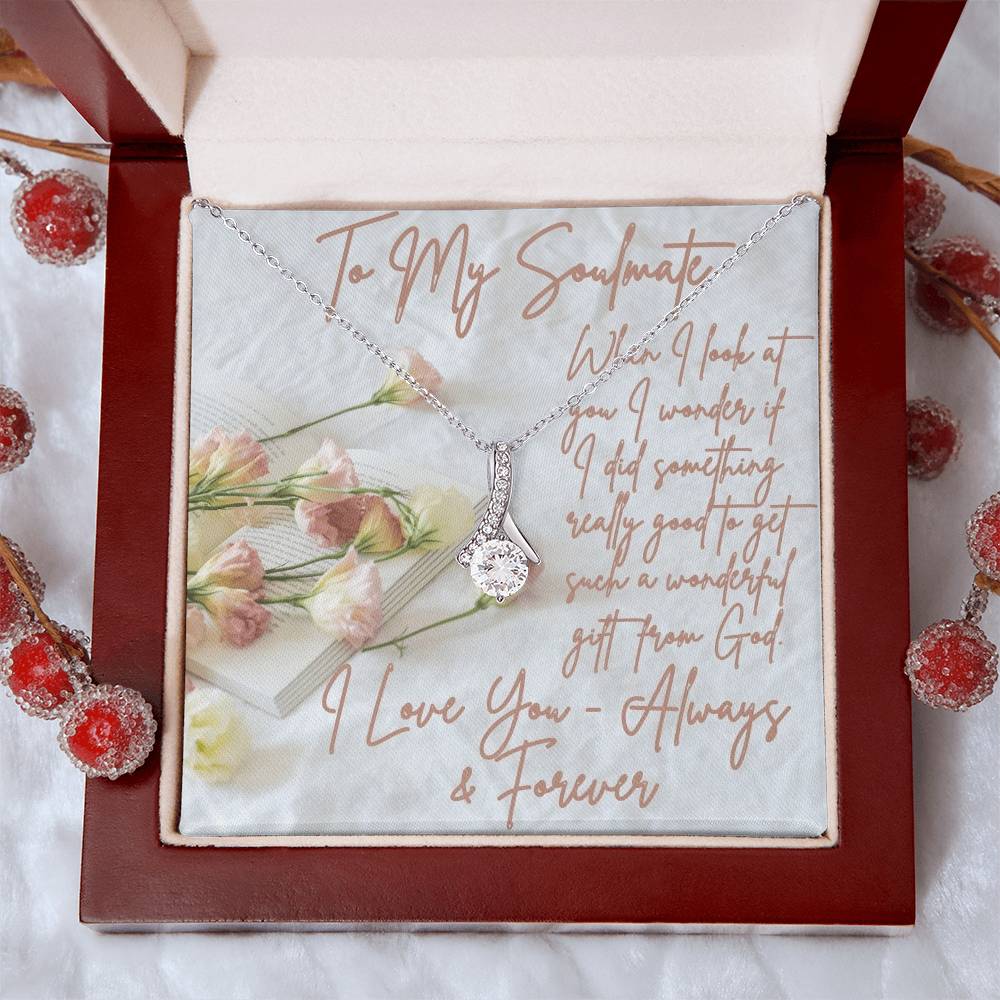 To My Soulmate
When I look at
you I wonder if
I did something
really good to get
such a wonderful
gift from God.
I Love You - Always
& Forever